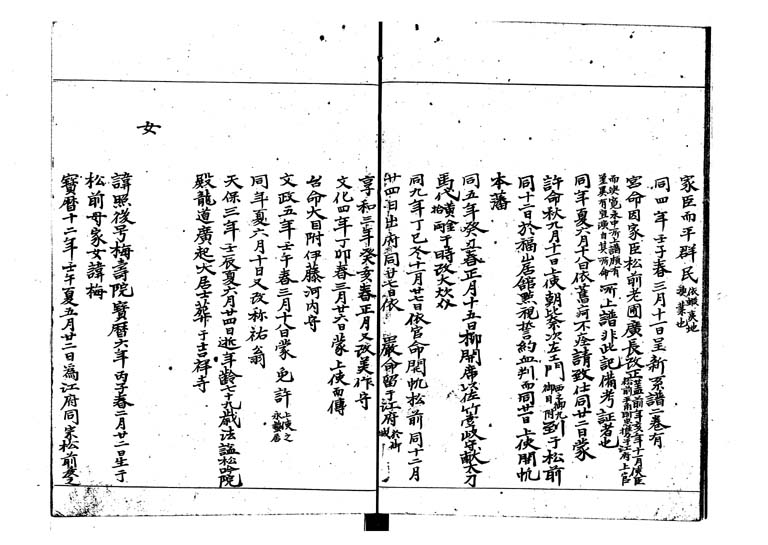 家臣而平群民依蝦夷地
騒業也
同四年壬子春三月十一日呈新系譜二巻有
官命因家臣松前老圃廣長改正
所上譜非此記備考証者也
同年夏六月十八日依舊病不痊請致仕同廿二日蒙
許命秋九月十一日上使朝比奈次左エ門到于松前
同十二日於福山居館點視誓約血判而同廿一日上使開帆
本藩
同五年癸丑春正月十五日柳間席以佐竹壹岐守献太刀
馬代黄金拾両于時改大炊介
同九年丁巳冬十一月廿七日依官命開帆松前同十二月
廿四日出府同廿七日依 嚴命留于江府
享和三年癸亥春正月又改美作守
文化四年丁卯春三月廿六日蒙上使而傳
台命大目附伊藤河内守
文政五年壬午春三月十八日蒙 免許上使之
永蟄居
同年夏六月十日又改称祐翁
天保三年壬辰夏六月廿四日逝年齢七十九歳法謚松吟院
殿龍道廣起大居士葬于吉祥寺
女
諱照後号梅壽院寶暦六年丙子春二月廿二日生于
松前母家女諱梅
寶暦十二年壬午夏五月廿二日為江府同宗松前